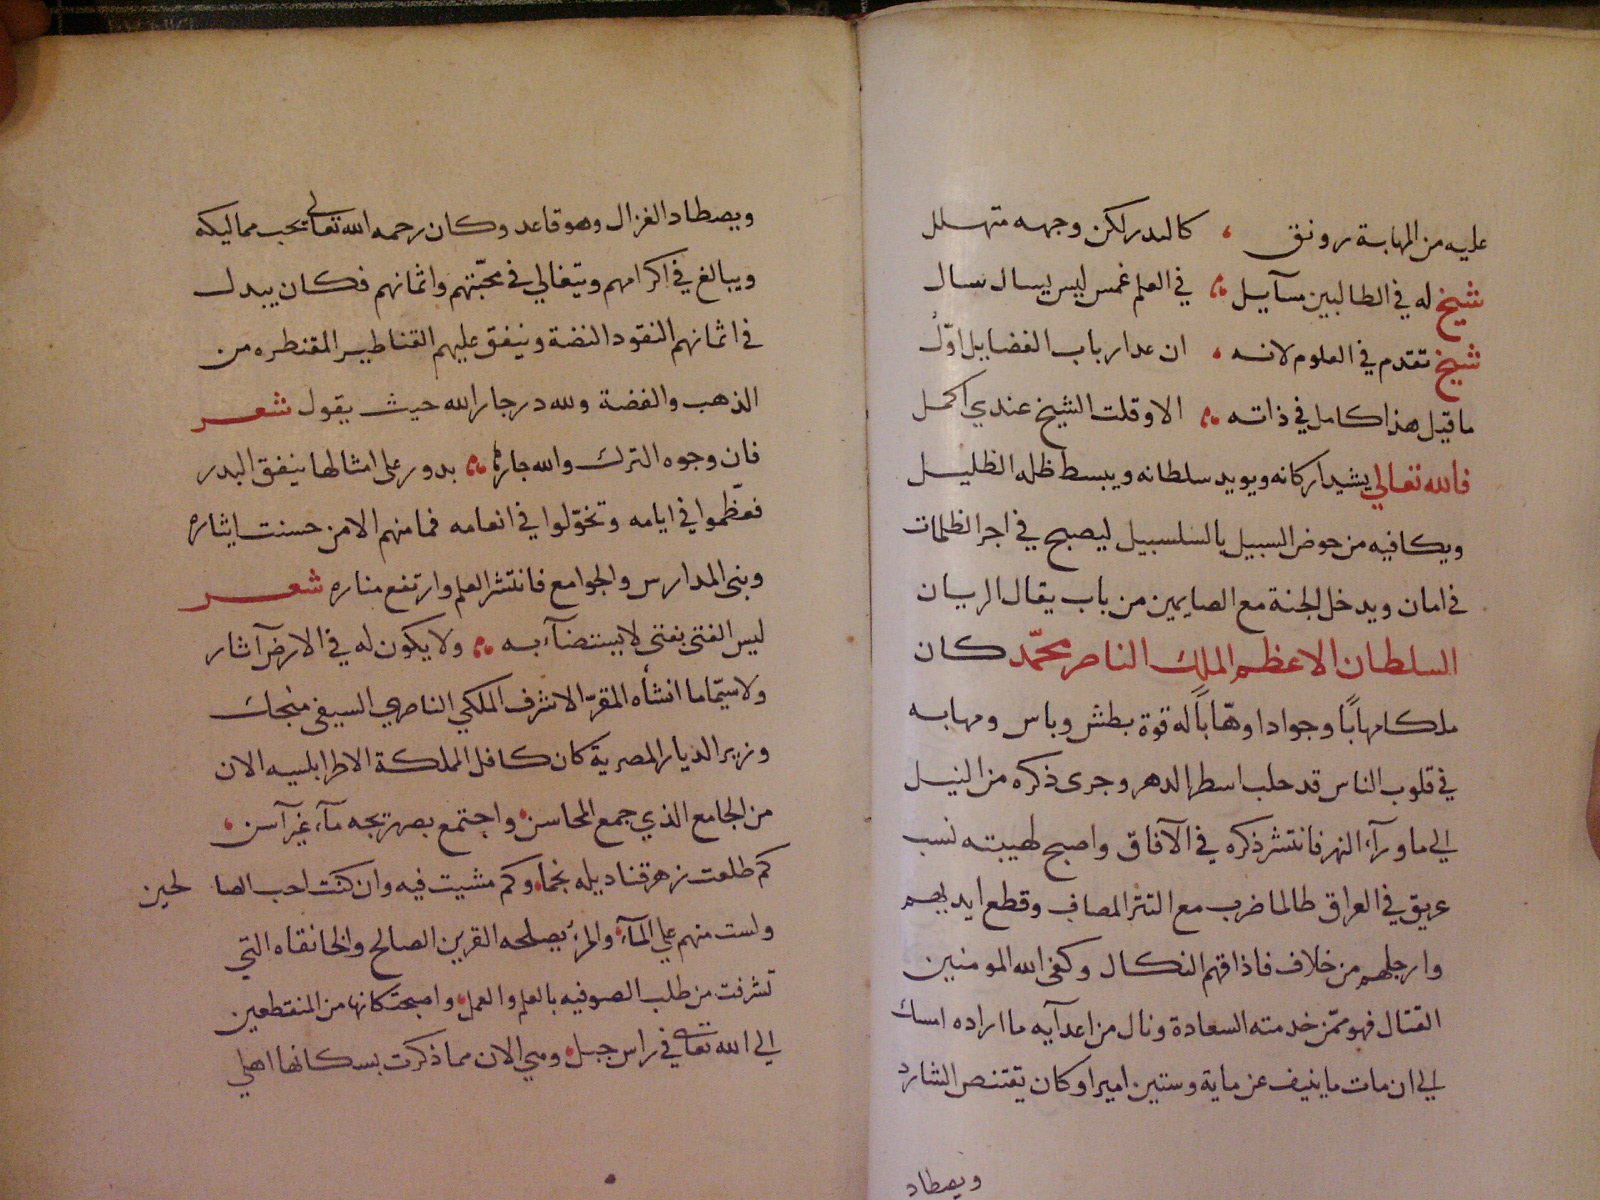 عليه من المهابة رونق ، كالبدر لكن وجهه متهلل
شيخ له في الطالبين سآيل ؞ في العلم غمس ليس يسال سال
شيخ تقدم في العلوم لانه ، ان عد ارباب الفضايل اوّل
ما قيل هذا كامل في ذاته ؞ الا وقلت الشيخ عندي اكمل
فالله تعالي يشيد اركانه ويويد سلطانه ويبسط ظله الظليل
ويكافيه من حوض السبيل بالسلسبيل ليصبح في اجر الظلمات
في امان ويدخل الجنة مع الصايمين من باب يقال الريان
السلطان الاعظم الملك الناصر محمّد كان
ملكا مهابًا وجوادا وهّابًا له قوة بطش وباس ومهابه
في قلوب الناس قد حلب اسطر الدهر وجرى ذكره من النيل
الي ماورآء النهر فانتشر ذكره في الآفاق واصبح لهيبته نسب
عريق في العراق طالما ضرب مع التتر المصاف وقطع ايديهم
وارجلهم من خلاف فاذاقهم النكال وكفى الله المومنين
القتال فهو ممّن خدمته السعادة ونال من اعدآيه ما اراده امسك
الي ان مات ما ينيف عن ماية وستين اميرا وكان يقتنص الشارد
ويصطاد
ويصطاد الغزال وهو قاعد وكان رحمه الله تعالى يحب مماليكه
ويبالغ في اكرامهم ويتغالي في محبّتهم واثمانهم فكان يبدل
في اثمانهم النقود النضة وينفق عليهم القناطير المقنطره من
الذهب والفضة ولله در جار الله حيث يقول شعر
فان وجوه الترك والله جارها ؞ بدور علي امثالها ينفق البدر
فعظّموا في ايامه وتخوّلوا في انعامه فما منهم الا من حسنت ايثاره
وبنى المدارس والجوامع فانتشر العلم وارتفع مناره شعر
ليس الفتى بفتى لا يستضآء به ؞ ولا يكون له في الارض آثار
ولا سيّما ما انشأه المقرّ الاشرف الملكي الناصري السيفي منجك
وزير الديار المصرية كان كافل المملكة الاطرابلسيه الان
من الجامع الذي جمع المحاسن، واجتمع بصهريجه مآء غير آسن ،
كم طلعت زهر قناديله نجما، وكم مشيت فيه وان كنت احب الصا لحين
ولست منهم علي المآء، والمرء يصلحه القرين الصالح والخانقاه التي
تشرفت من طلب الصوفيه بالعلم والعمل، واصبحت كانها من المنقطعين
الي الله تعالى في راس جبل، وهي الان مما ذكرت بسكانها اهلي